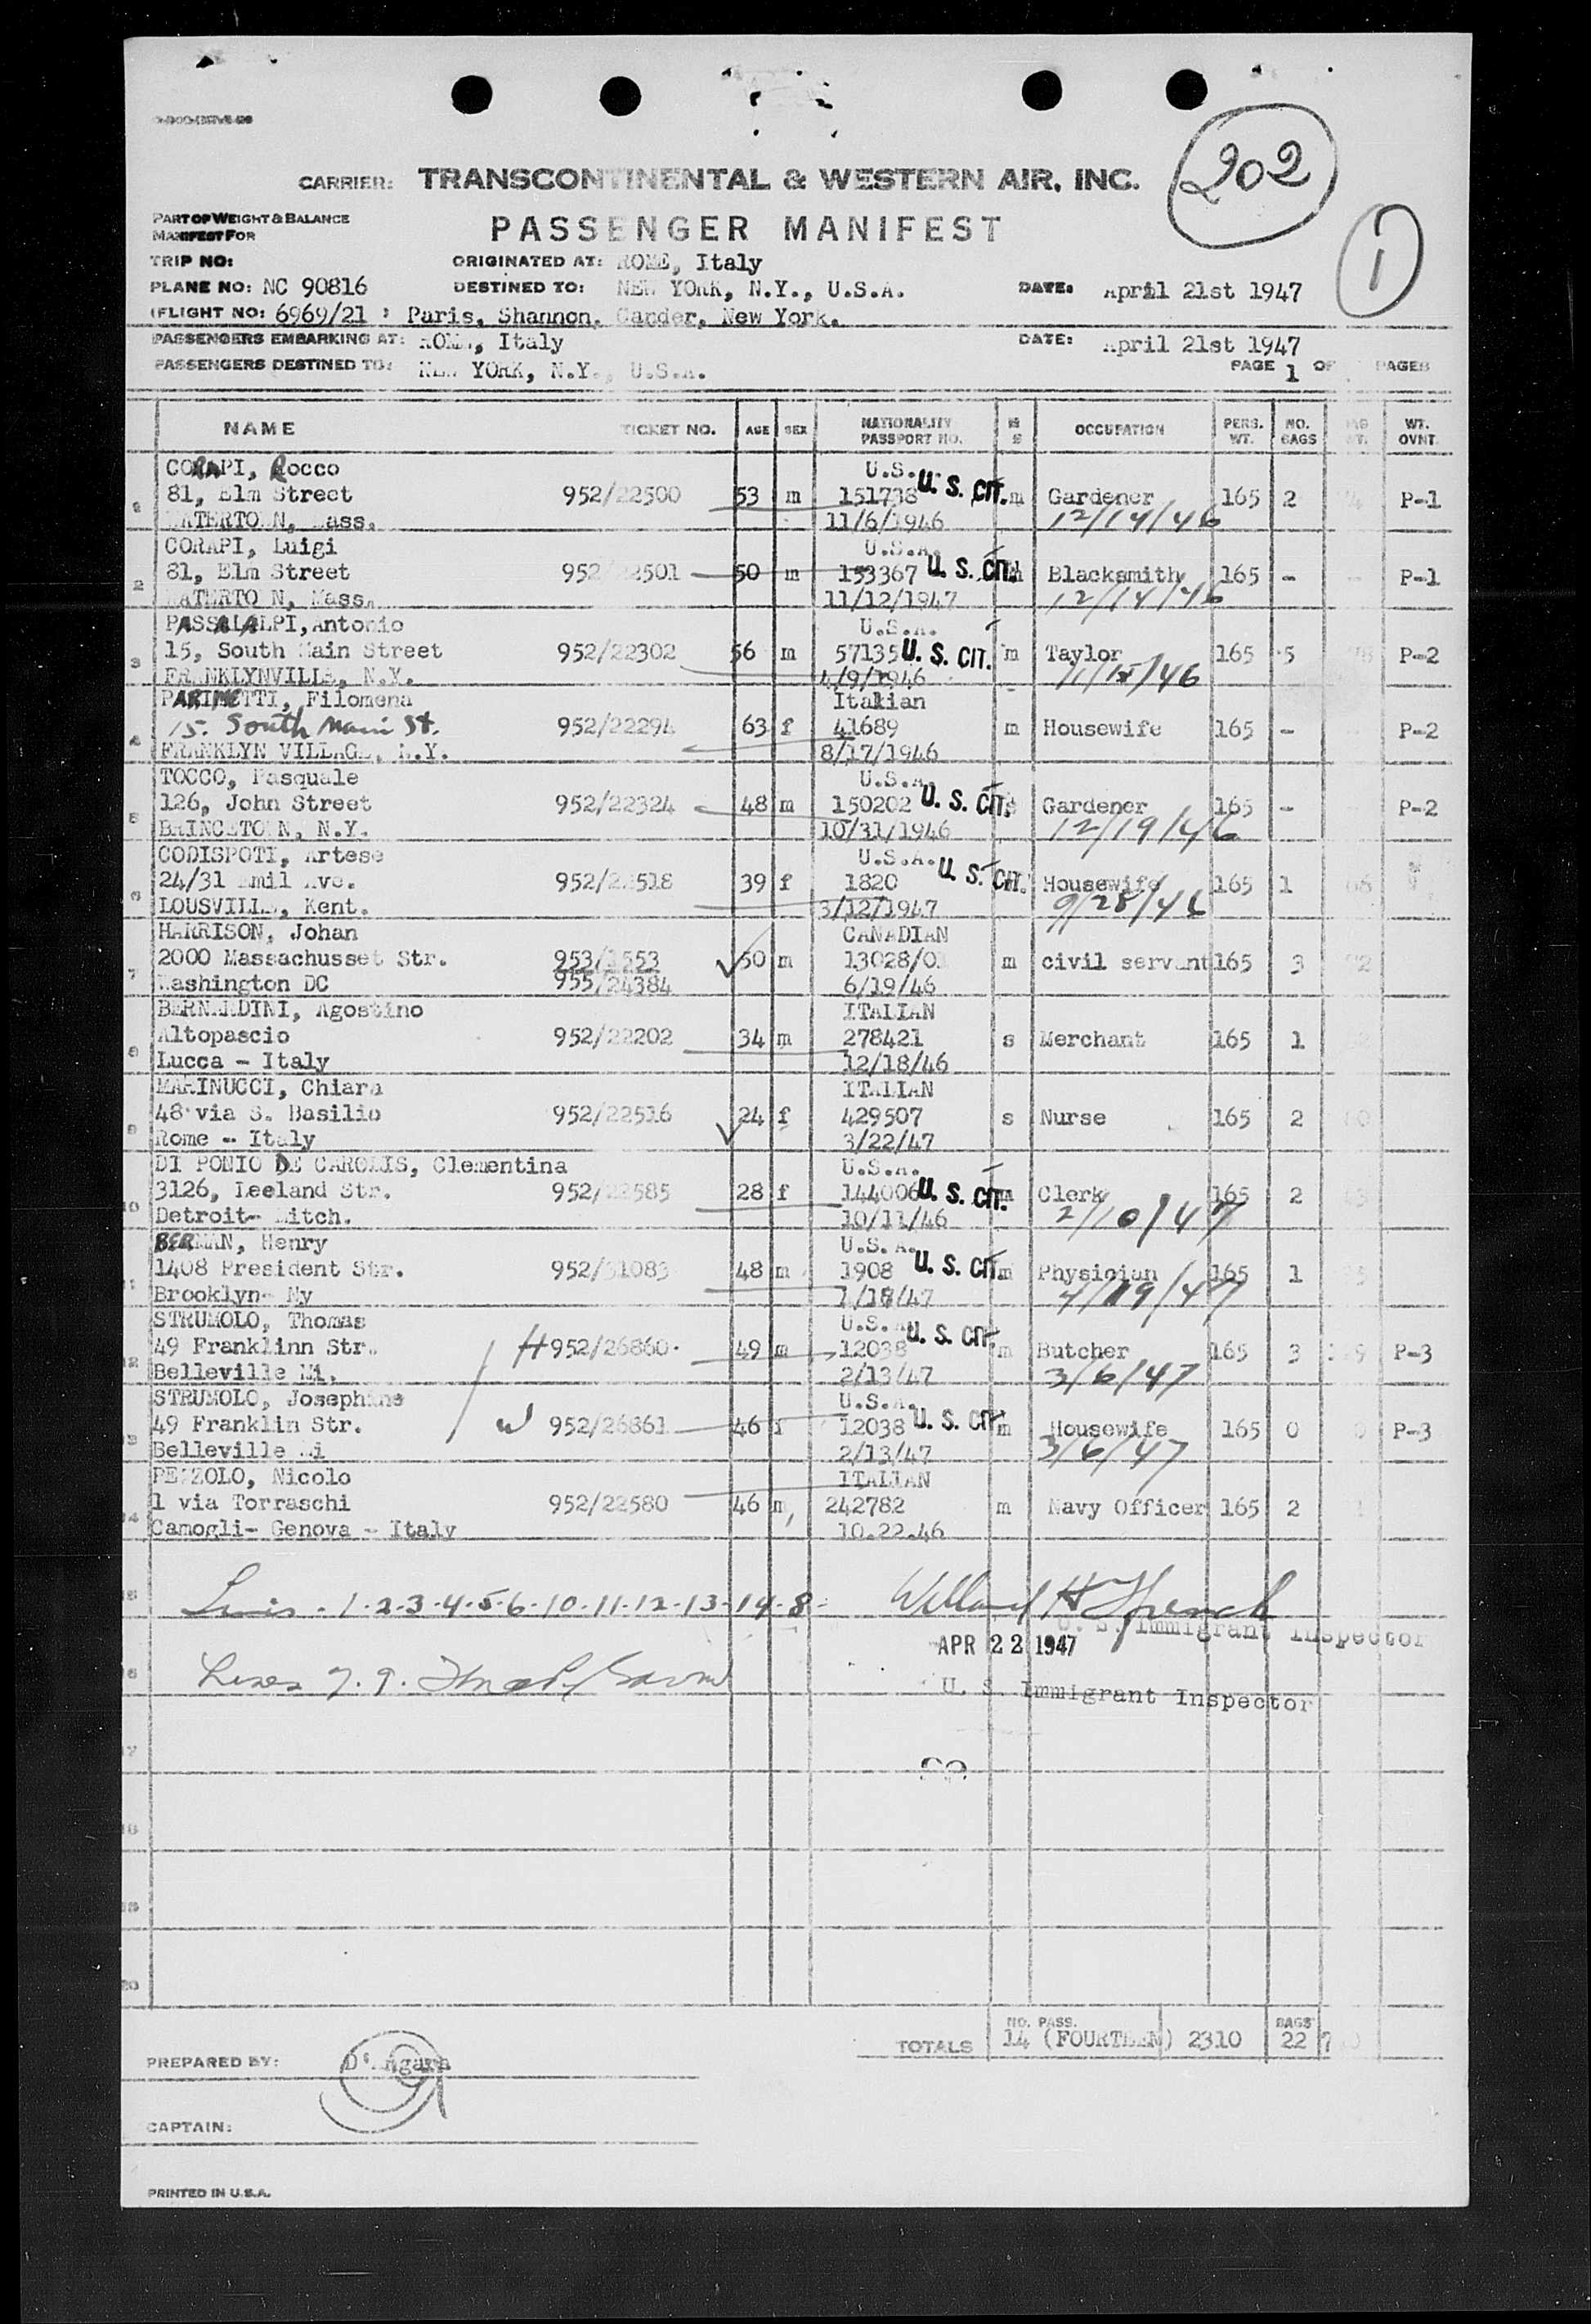 202
CARRIER: TRANSCONTINENTAL & WESTERN AIR, INC.
PART OF WEIGHT & BALANCE
MANIFEST FOR
PASSENGER MANIFEST
1
TRIP NO: ORIGINATED AT: ROME, Italy
PLANE NO: NC 90816 DESTINED TO: NEW YORK, N.Y., U.S.A. DATE: April 21st 1947
(FLIGHT NO: 6969/21 : Paris, Shannon, Gander, New York.
PASSENGERS EMBARKING AT: ROME, Italy DATE: April 21st 1947
PASSENGERS DESTINED TO: NEW YORK, N.Y., U.S.A. PAGE 1 OF PAGES
NAME TICKET NO. AGE SEX NATIONALITY PASSPORT NO. M S OCCUPATION PERS. WT. NO. BAGS WT. OVNT.
CORAPI, Rocco U.S.
1 81, Elm Street 952/22500 53 m 151738 U. S. CIT. m Gardener 165 2 P-1
WATERTOWN, Mass. 11/6/1946 12/14/46
CORAPI, Luigi U.S.A.
2 81, Elm Street 952/22501 50 m 153367 U. S. CIT. Blacksmith 165 - P-1
WATERTOWN, Mass. 11/12/1947 12/14/46
PASSALALPI, Antonio U.S.A.
3 15, South Main Street 952/22302 56 m 57135 U. S. CIT. m Taylor 165 5 P-2
FRANKLYNVILLE, N.Y. 4/9/1946
PARIMETTI, Filomena Italian
4 15. South Main St. 952/22294 63 f 41689 m Housewife 165 - P-2
FRANKLYN VILLAGE, N.Y. 8/17/1946
TOCCO, Pasquale U.S.A.
5 126, John Street 952/22324 48 m 150202 U. S. CIT. Gardener 165 - P-2
BRINCETOWN, N.Y. 10/31/1946 12/19/46
CODISPOTI, Artese U.S.A.
6 24/31 Emil Ave. 952/22518 39 f 1820 U. S. CIT. Housewife 165 1
LOUSVILLE, Kent. 3/12/1947 9/28/46
HARRISON, Johan CANADIAN
7 2000 Massachusset Str. 953/1553 50 m 13028/0 m civil servant 165 3
Washington DC 955/24384 6/19/46
BERNARDINI, Agostino ITALIAN
8 Altopascio 952/22202 34 m 278421 s Merchant 165 1
Lucca - Italy 12/18/46
MARINUCCI, Chiara ITALIAN
9 48 via S. Basilio 952/22516 24 f 429507 s Nurse 165 2
Rome - Italy 3/22/47
DI PONIO DE CAROLIS, Clementina U.S.A.
10 3126, Leeland Str. 952/22585 28 f 144006 U. S. CIT. Clerk 165 2
Detroit- Mitch. 10/11/46 2/10/47
BERMAN, Henry U.S.A.
11 1408 President Str. 952/31083 48 m 1908 U. S. CIT. m Physician 165 1
Brooklyn- Ny 1/18/47
STRUMOLO, Thomas U.S.A.
12 49 Franklinn Str. H 952/26860 49 m 12038 U. S. CIT. m Butcher 165 3 P-3
Belleville Mi. 2/13/47 3/6/47
STRUMOLO, Josephine U.S.A.
13 49 Franklin Str. W 952/26861 46 f 12038 U. S. CIT. m Housewife 165 0 P-3
Belleville Mi 2/13/47 3/6/47
PEZZOLO, Nicolo ITALIAN
14 1 via Torraschi 952/22580 46 m 242782 m Navy Officer 165 2
Camogli- Genova - Italy 10.22.46
15 1-2-3-4-5-6-10-11-12-13-14-8-
U. S. Immigrant Inspector
APR 22 1947
16 7. 9.
U. S. Immigrant Inspector
17
18
19
20
TOTALS NO. PASS. 14 (FOURTEEN) 2310 BAGS 22
PREPARED BY:
CAPTAIN:
PRINTED IN U.S.A.